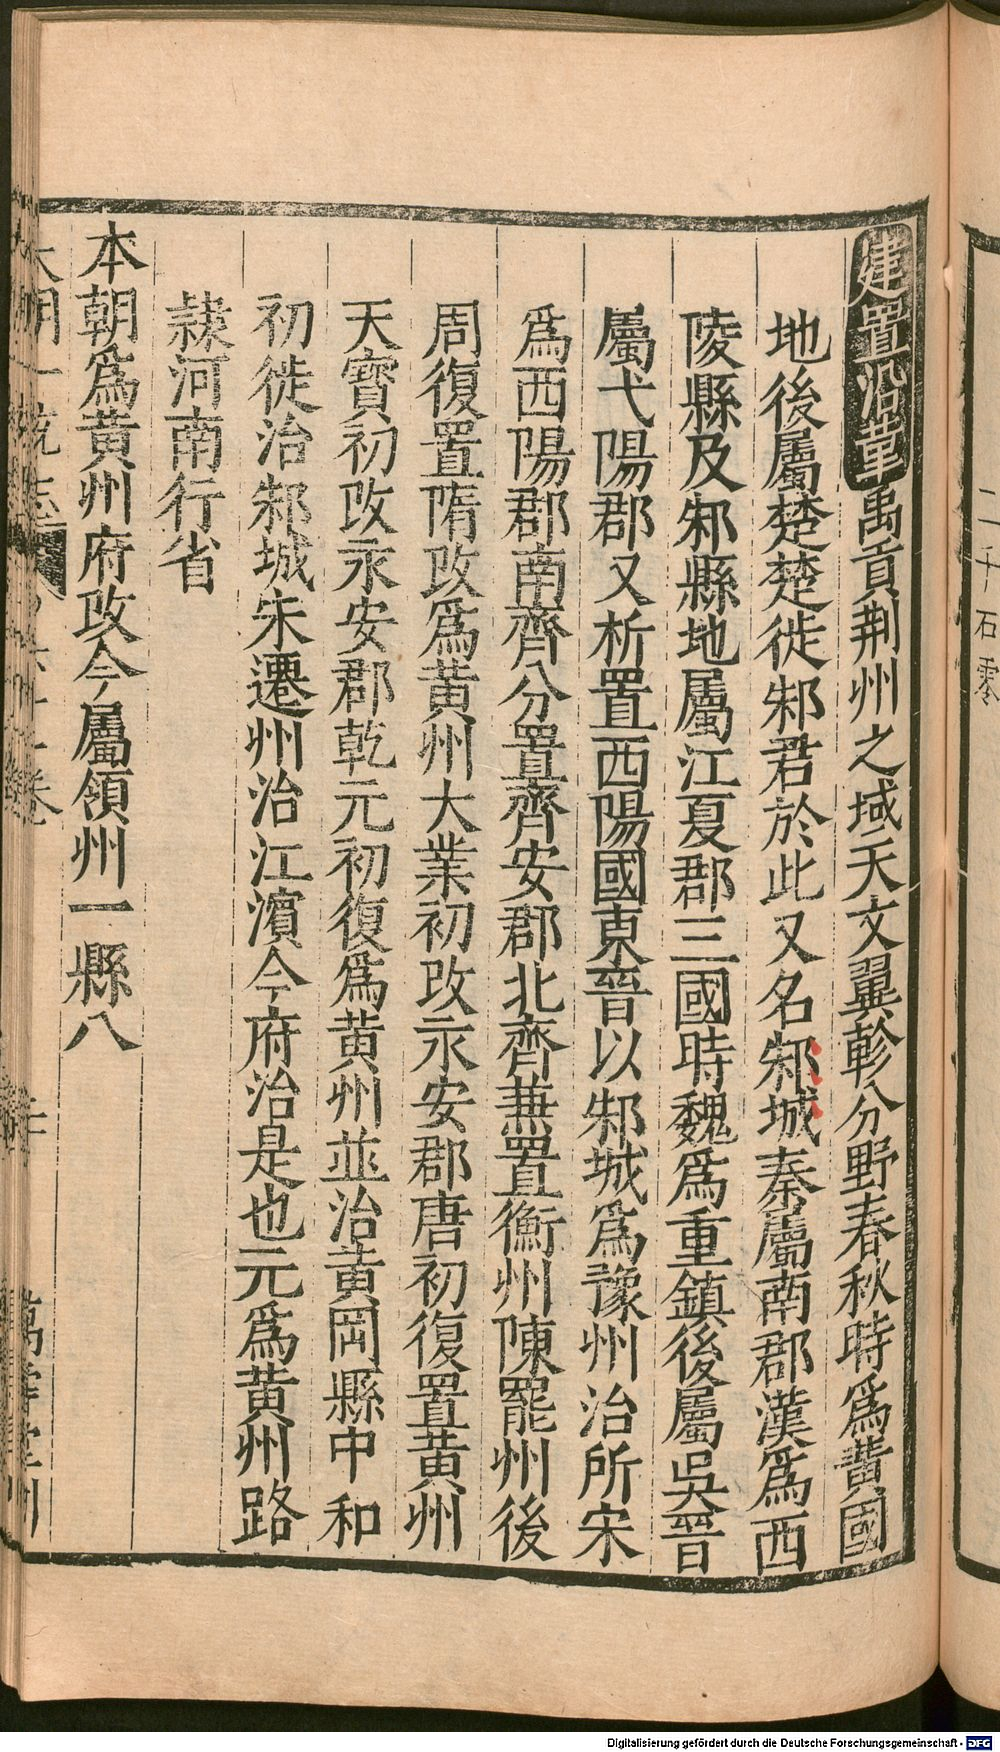 二千石零
建置沿革禹貢荆州之域天文翼軫分野春秋時爲黄國
地後屬楚楚徙邾君於此又名邾城秦屬南郡漢爲西
陵縣及邾縣地屬江夏郡三國時魏爲重鎮後屬吳晉
屬弋陽郡又析置西陽國東晉以邾城爲豫州治所宋
爲西陽郡南齊分置齊安郡北齊兼置衡州陳罷州後
周復置隋改爲黄州大業初改永安郡唐初復置黄州
天寳初改永安郡乾元初復爲黄州並治黄岡縣中和
初徙治邾城宋遷州治江濵今府治是也元爲黄州路
隸河南行省
本朝爲黄州府改今屬領州一縣八
大明一統志 卷 萬壽堂刊
Digitalisierung gefördert durch die Deutsche Forschungsgemeinschaft - DFG